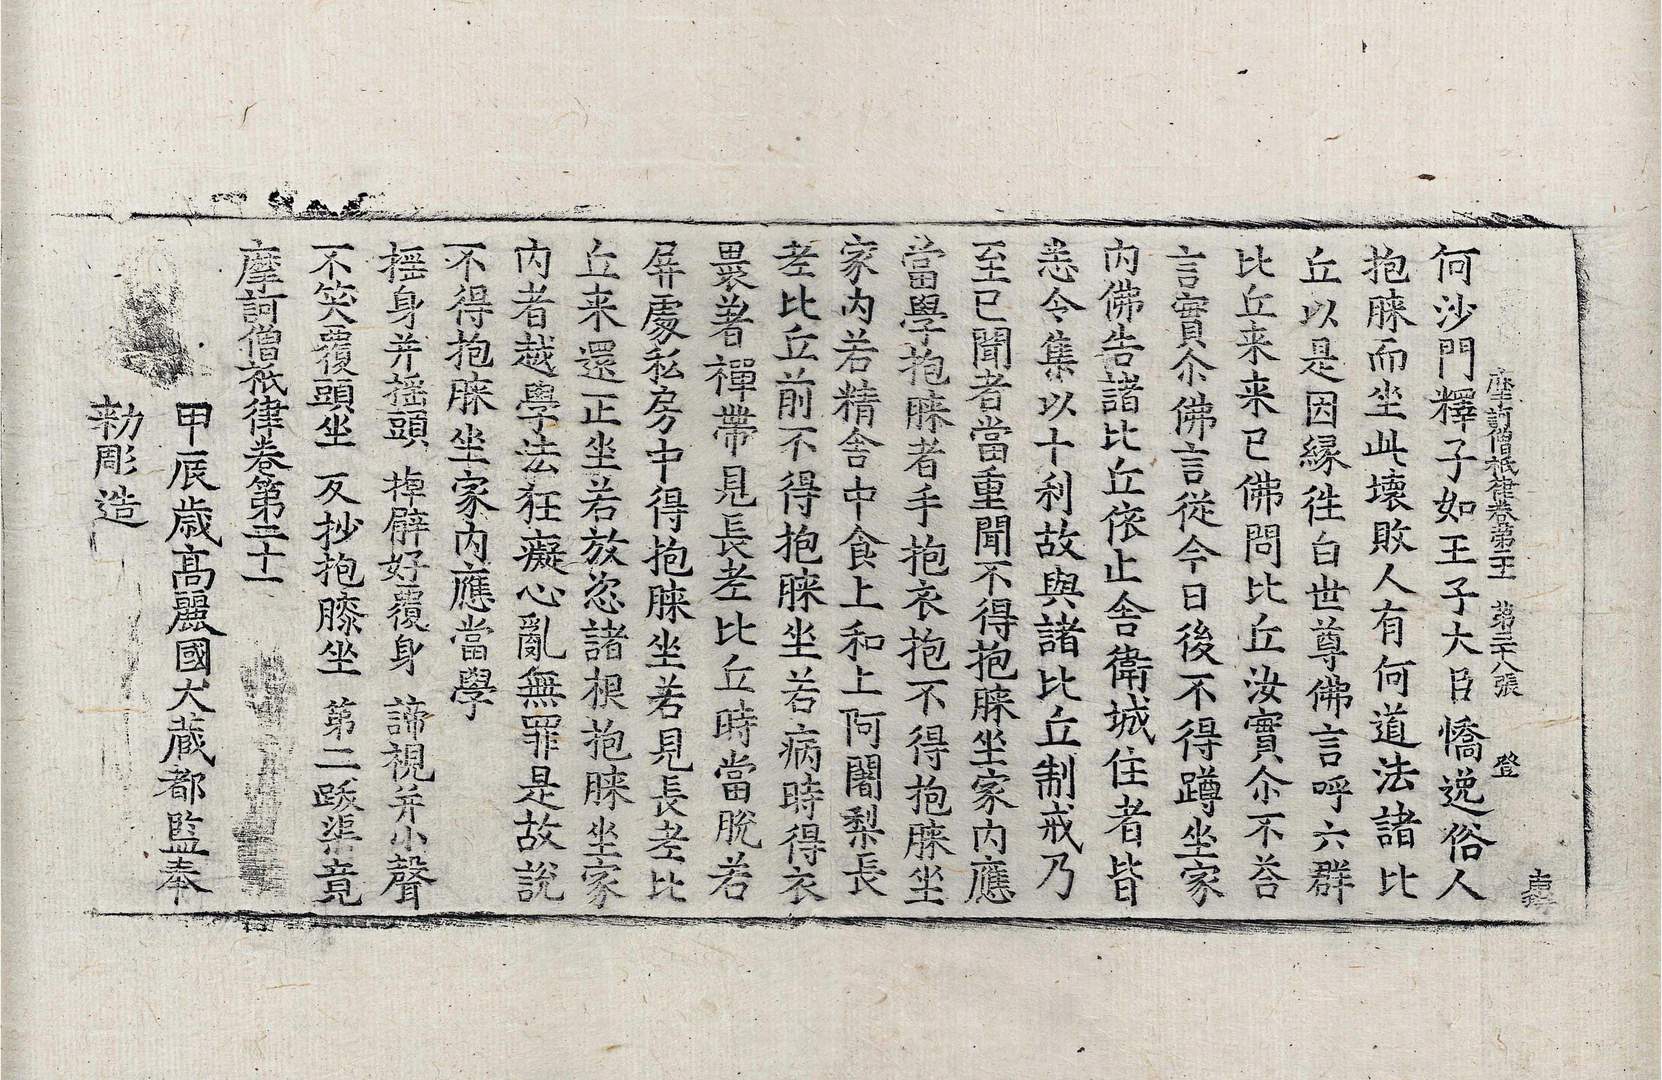 摩訶僧祇律卷第二十一 第二十八張 登
何沙門釋子如王子大臣憍逸俗人
抱膝而坐此壞敗人有何道法諸比
丘以是因緣往白世尊佛言呼六群
比丘来来已佛問比丘汝實尒不荅
言實尒佛言從今日後不得蹲坐家
內佛告諸比丘依止舍衛城住者皆
悉令集以十利故與諸比丘制戒乃
至已聞者當重聞不得抱膝坐家內應
當學抱膝者手抱衣抱不得抱膝坐
家內若精舍中食上和上阿闍梨長
老比丘前不得抱膝坐若病時得衣
裹著禪帶見長老比丘時當脫若
屏處私房中得抱膝坐若見長老比
丘来還正坐若放恣諸根抱膝坐家
內者越學法狂癡心亂無罪是故說
不得抱膝坐家內應當學
揺身并揺頭 掉臂好覆身 諦視并小聲
不笑覆頭坐 反抄抱膝坐 第二跋渠竟
摩訶僧祇律卷第二十一
甲辰歳高麗國大藏都監奉
勑彫造